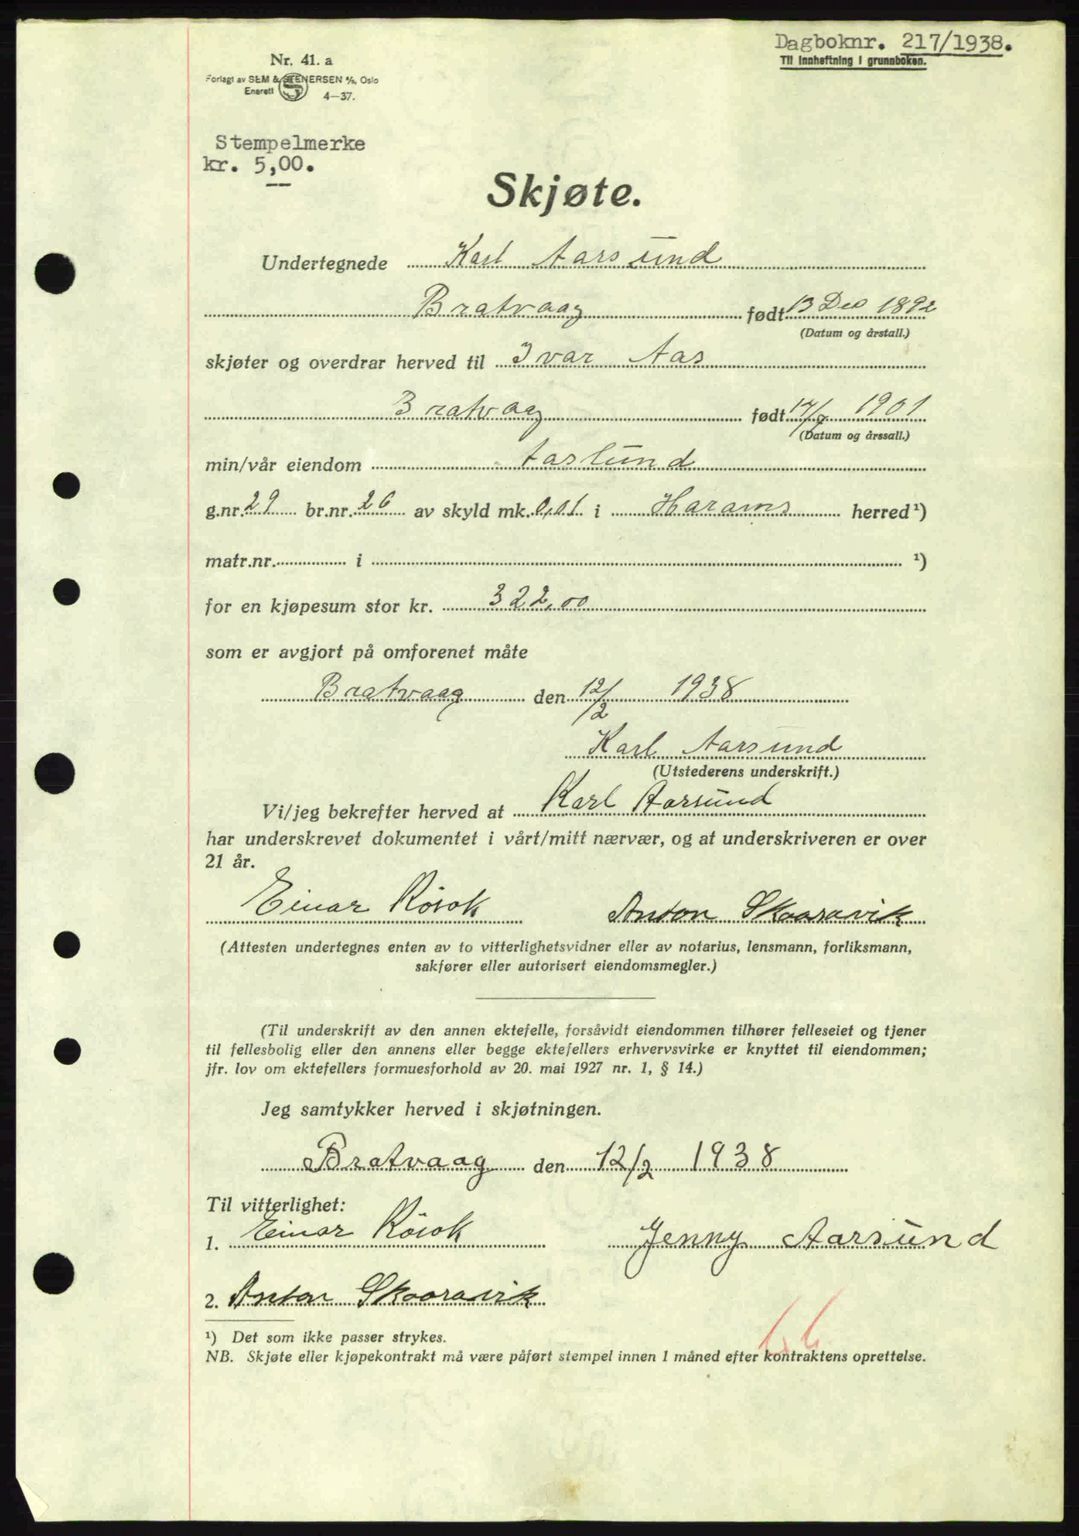 Dagboknr. 217/1938.
Til innheftning i grunnboken.
Nr. 41. a
Forlagt av SEM & STENERSEN A/S, Oslo
Enerett 4—37.
Stempelmerke
kr. 5,00.
Skjøte.
Undertegnede Karl Aarsund
Bratvaag født 13 Des 1892
(Datum og årstall.)
skjøter og overdrar herved til Ivar Aas
Bratvaag født 1901
(Datum og årssall.)
min/vår eiendom Aaslund
g.nr. 29 br.nr. 26 av skyld mk. 0,01 i Harams herred ¹)
matr.nr. i ¹)
for en kjøpesum stor kr. 322,00
som er avgjort på omforenet måte
Bratvaag den 12/2 1938
Karl Aarsund
(Utstederens underskrift.)
Vi/jeg bekrefter herved at Karl Aarsund
har underskrevet dokumentet i vårt/mitt nærvær, og at underskriveren er over
21 år.
Einar Rösok Anton Skaaravik
(Attesten undertegnes enten av to vitterlighetsvidner eller av notarius, lensmann, forliksmann,
sakfører eller autorisert eiendomsmegler.)
(Til underskrift av den annen ektefelle, forsåvidt eiendommen tilhører felleseiet og tjener
til fellesbolig eller den annens eller begge ektefellers erhvervsvirke er knyttet til eiendommen;
jfr. lov om ektefellers formuesforhold av 20. mai 1927 nr. 1, § 14.)
Jeg samtykker herved i skjøtningen.
Bratvaag den 12/2 1938
Til vitterlighet:
1. Einar Rösok Jenny Aarsund
2. Anton Skaaravik
¹) Det som ikke passer strykes.
NB. Skjøte eller kjøpekontrakt må være påført stempel innen 1 måned efter kontraktens oprettelse.